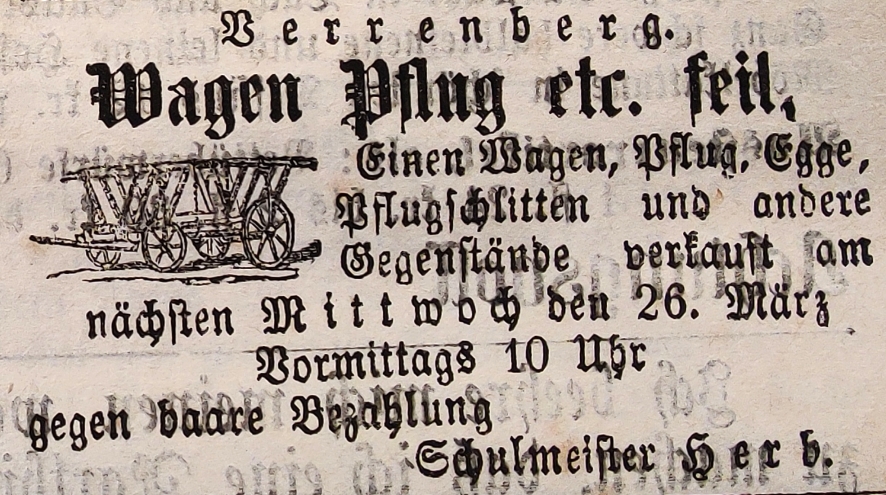 Verrenberg.
Wagen Pflug etc. feil,
Einen Wagen, Pflug, Egge,
Pflugschlitten und andere
Gegenstände verkauft am
nächsten Mittwoch den 26. März
Vormittags 10 Uhr
gegen baare Bezahlung
Schulmeister Herb.